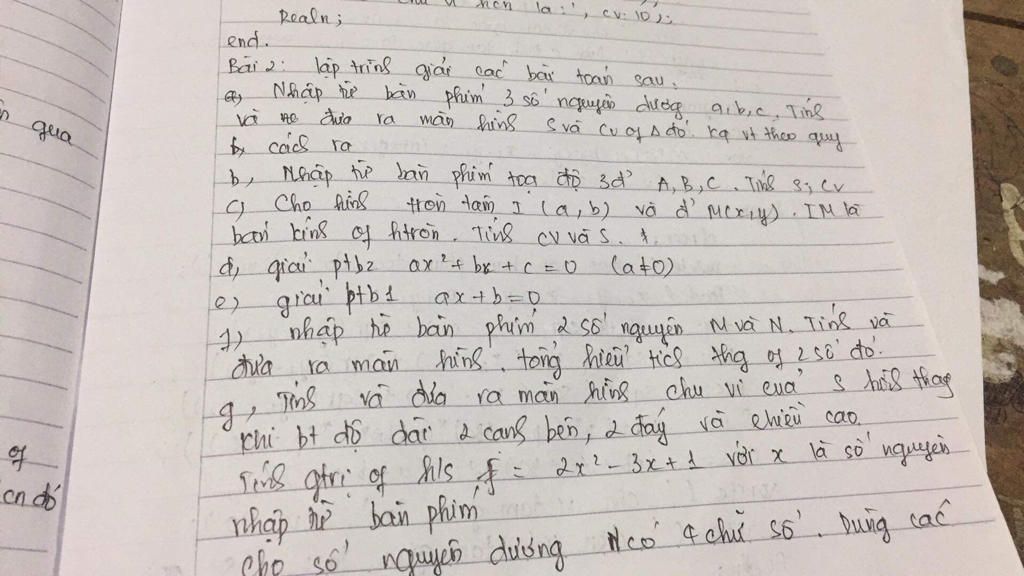 hcn là: ', cv: 10);
Realn;
end.
Bài 2: lập trình giải các bài toán sau:
a, Nhập từ bàn phím 3 số nguyên dương a, b, c. Tính
và đưa ra màn hình S và CV of Δ đó. kq vt theo quy
cách ra
b, Nhập từ bàn phím toạ độ 3đ' A, B, C. Tính S, CV
c) Cho hình tròn tâm I (a, b) và đ' M(x, y). IM là
bán kính of htròn. Tính CV và S.
d, giải ptb2 ax² + bx + c = 0 (a≠0)
e) giải ptb1 ax + b = 0
f) nhập từ bàn phím 2 số nguyên M và N. Tính và
đưa ra màn hình tổng hiệu tích thg of 2 số đó.
g, Tính và đưa ra màn hình chu vi của S hình thag
khi bt độ dài 2 cạnh bên, 2 đáy và chiều cao.
Tính gtrị of h/s f = 2x² - 3x + 1 với x là số nguyên
nhập từ bàn phím
Cho số nguyên dương N có 4 chữ số. Dùng các
qua
of
cn đó